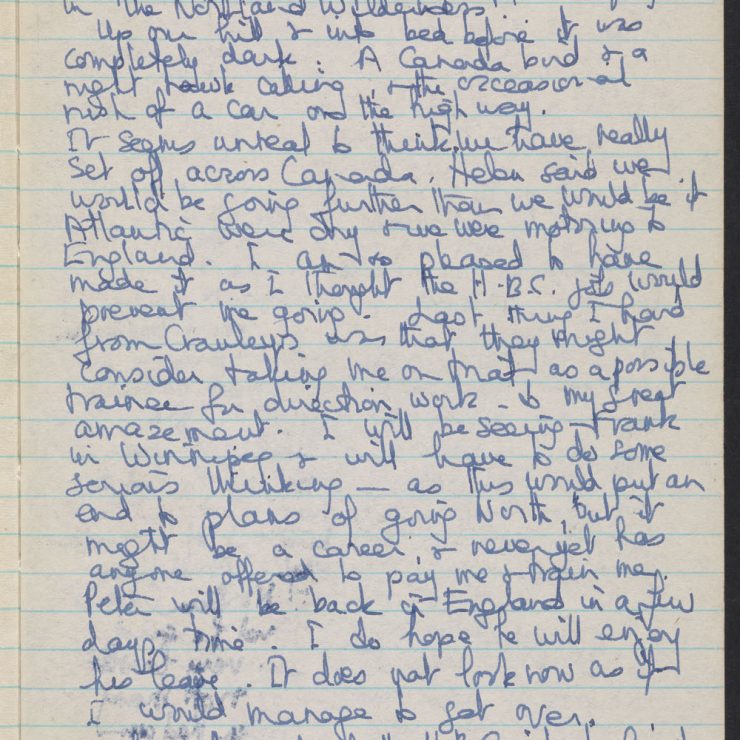 in the Northland Wilderness
Up one hill & into bed before it was
completely dark. A Canada bird & a
night hawk calling, & the occasional
rush of a car on the highway.
It seems unreal to think we have really
set off across Canada. Helen said we
would be going further than we would be if
Atlantic were dry & we were motoring to
England. I am so pleased to have
made it as I thought the H.B.S. job would
prevent me going. Last thing I heard
from Crawleys was that they might
consider taking me on that as a possible
trainee for direction work to my great
amazement. I will be seeing Frank
in Winnipeg & will have to do some
serious thinking — as this would put an
end to plans of going North, but it
might be a career, & never yet has
anyone offered to pay me & train me.
Peter will be back in England in a few
days time. I do hope he will enjoy
his leave. It does not look now as if
I would manage to get over.